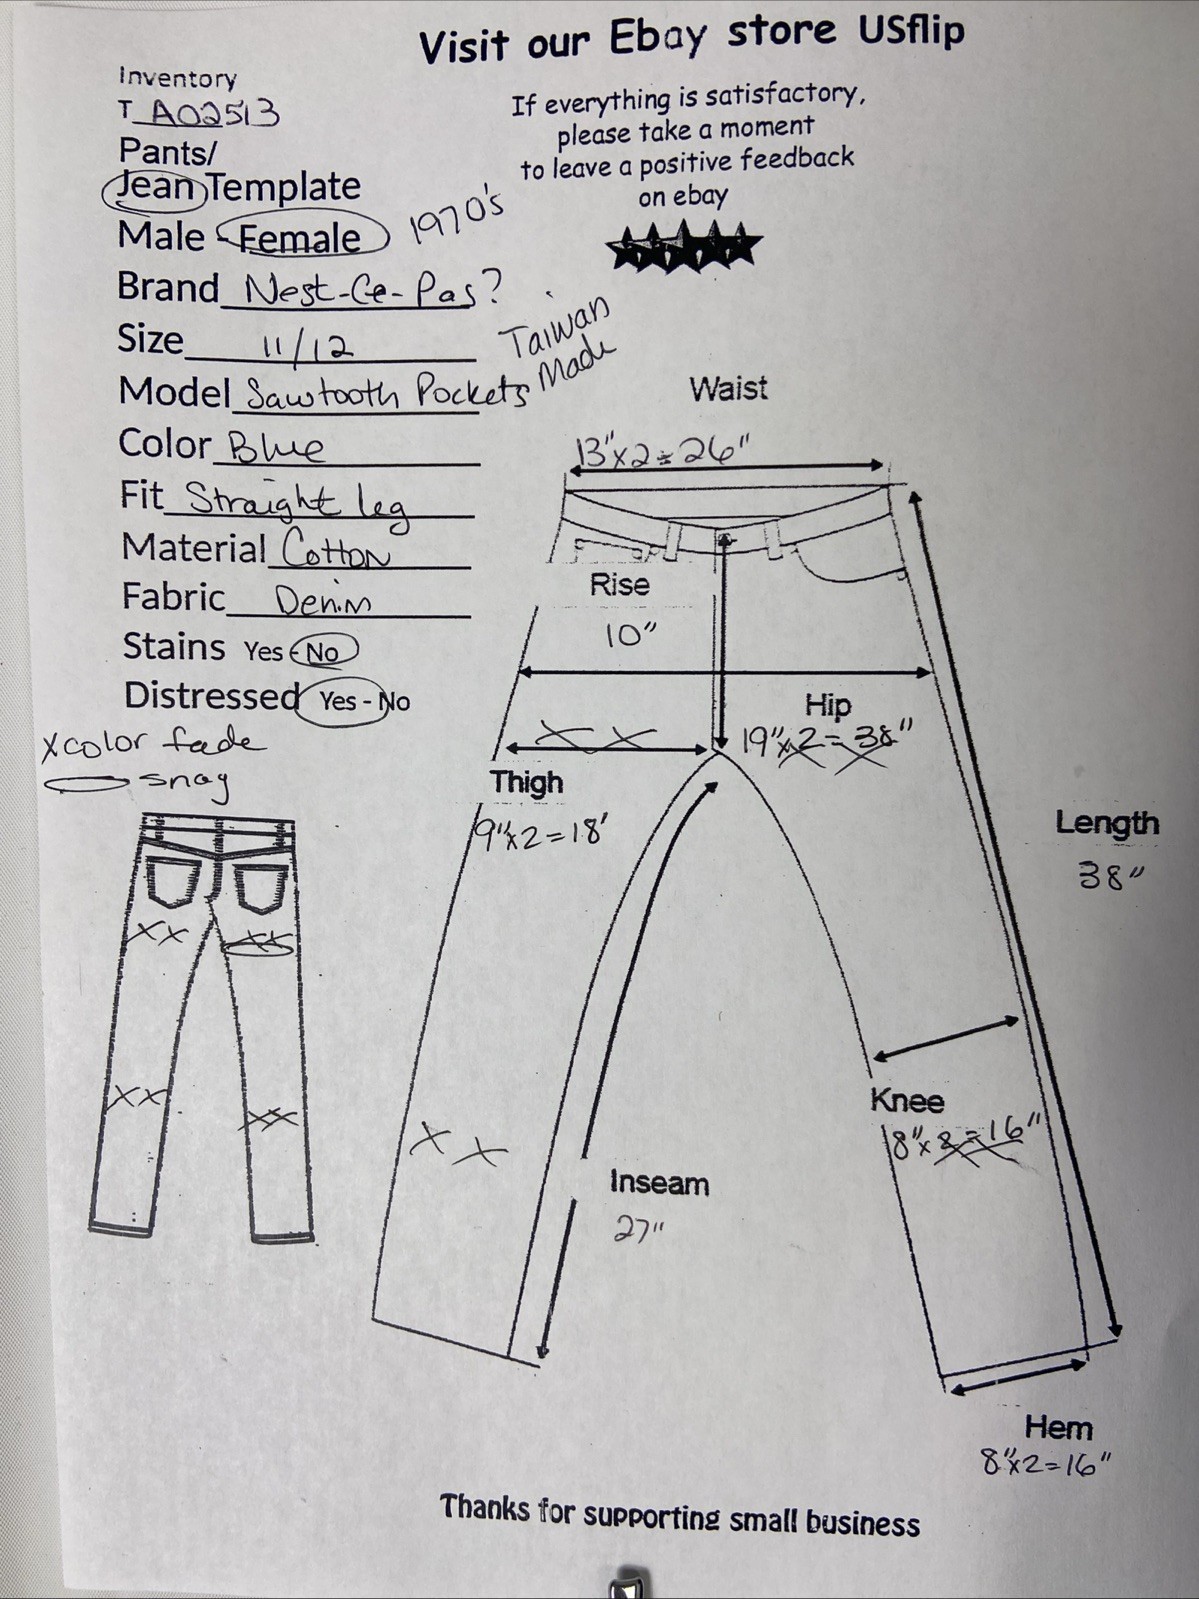 Visit our Ebay store USflip
Inventory
T A02513
Pants/
Jean Template
Male - Female
1970's
Brand Nest-Ce-Pas?
Size 11/12
Taiwan
Made
Model Sawtooth Pockets
Color Blue
Fit Straight leg
Material Cotton
Fabric Denim
Stains Yes - No
Distressed Yes - No
X color fade
snag
If everything is satisfactory,
please take a moment
to leave a positive feedback
on ebay
Waist
13"x2=26"
Rise
10"
Hip
19"x2=38"
X X
Thigh
9"x2=18'
Length
38"
XX
XX
XX
XX
X X
Knee
8"x2=16"
Inseam
27"
Hem
8"x2=16"
Thanks for supporting small business